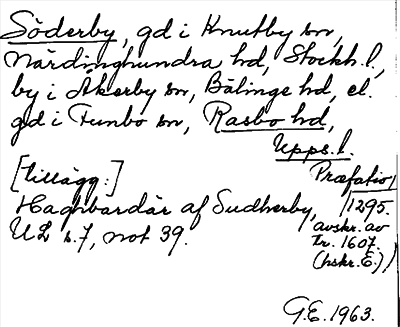 Söderby, gd i Knutby sn,
Närdinghundra hd, Stockh. l,
by i Åkerby sn, Bälinge hd, el.
gd i Funbo sn, Rasbo hd,
Upps. l.
[tillägg:]
Præfatio
Haghbardär af Sudherby, 1295.
UL s. 7, not 39.
avskr. av
tr. 1607.
(hskr. E.)
G.E. 1963.